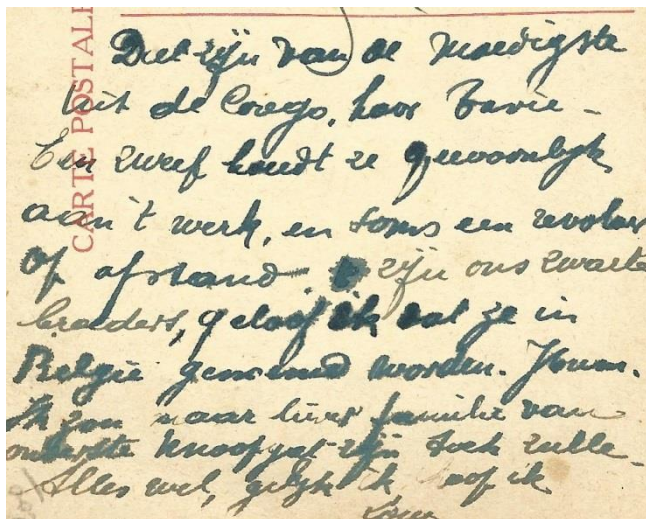 CARTE POSTALE
Dit zijn van de moedigste
uit de Congo, hoor
Een zweep houdt ze gewoonlijk
aan 't werk, en soms een revolver
op afstand. zijn ons zwarte
broeders, geloof ik dat ze in
België genoemd worden. Hum.
Ik zou maar liever familie van
onderste knoopgat zijn
Alles wel, gelijk ik hoop ik